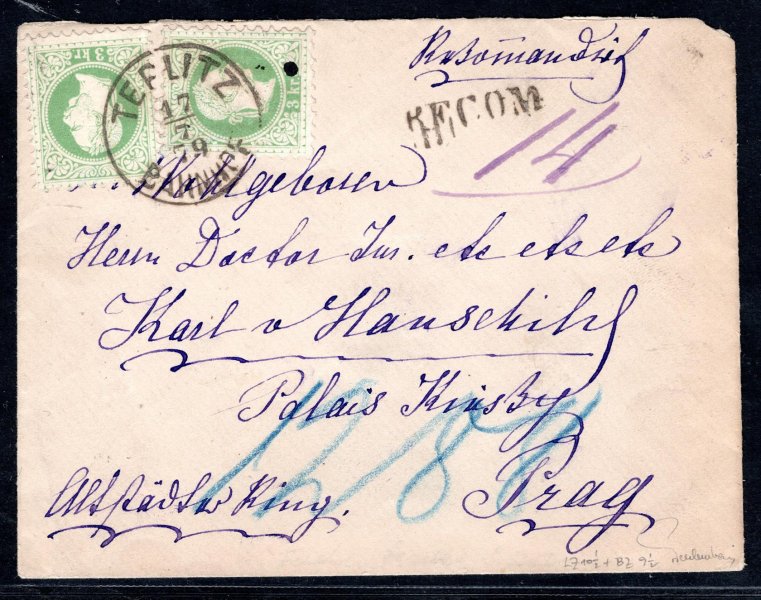 3 kr.
3 kr.
TEPLITZ
17/7
79
BAHNHOF
Rekommandirt
RECOM
14
Wohlgeboren
Herrn Doctor Jur. etc etc etc
Karl v Hanschild
Palais Kinsky
Altstädter Ring.
Prag
LZ 10½ + BZ 9½